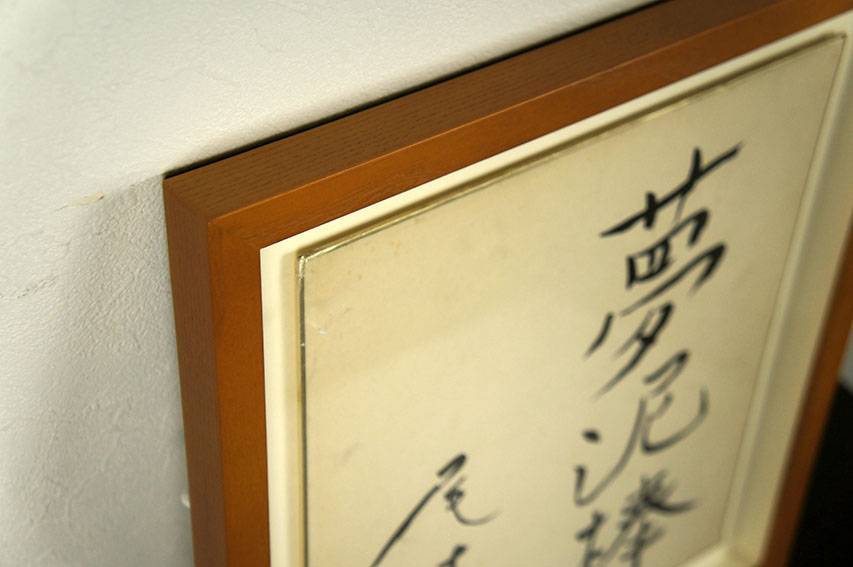 夢泥棒
尾